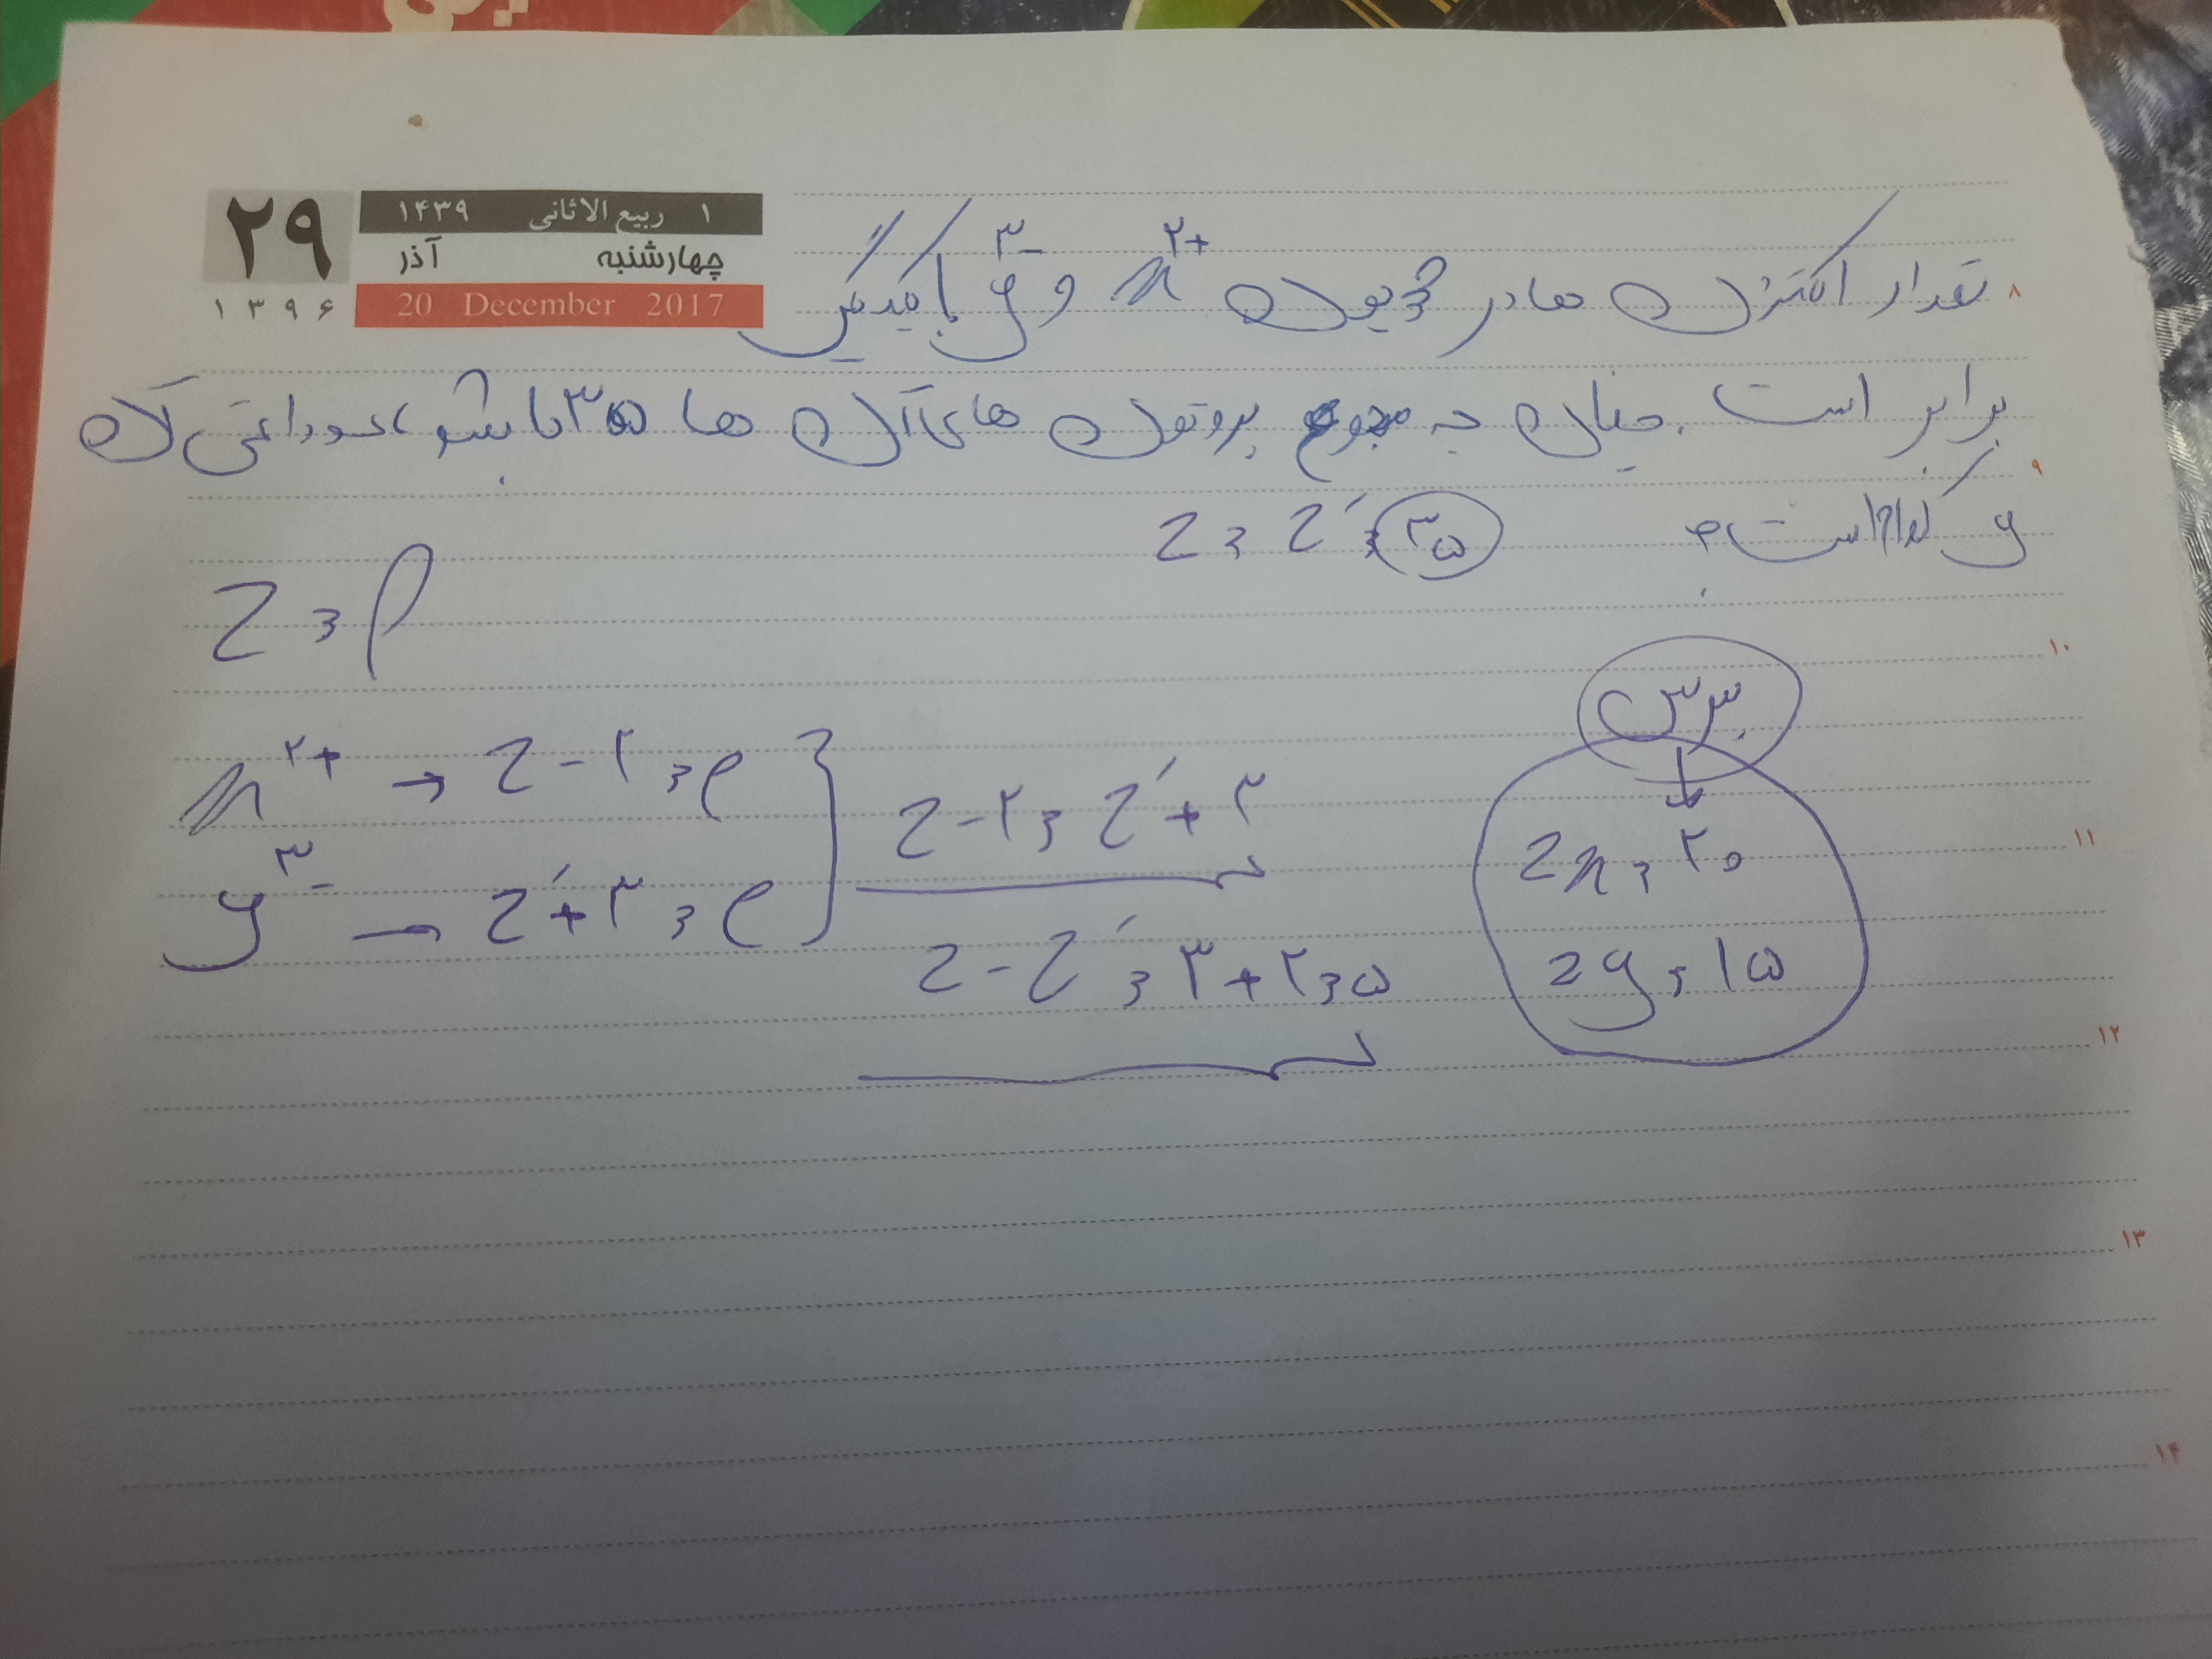 ۲۹
۱ ربیع الاثانی ۱۴۳۹
چهارشنبه آذر
۱۳۹۶
20 December 2017
۸
تعداد الکترون ها در یون x²⁺ و y³⁻ با یکدیگر
برابر است. چنان چه مجموع پروتون های آن ها ۳۵ باشد، عدد اتمی
۹
y کدام است؟
z = z' = ۳۵
z = p
۱۰
x²⁺ → z - ۲ = e
y³⁻ → z' + ۳ = e
z - ۲ = z' + ۳
z - z' = ۳ + ۲ = ۵
پس
↓
zx = ۲۰
zy = ۱۵
۱۱
۱۲
۱۳
۱۴